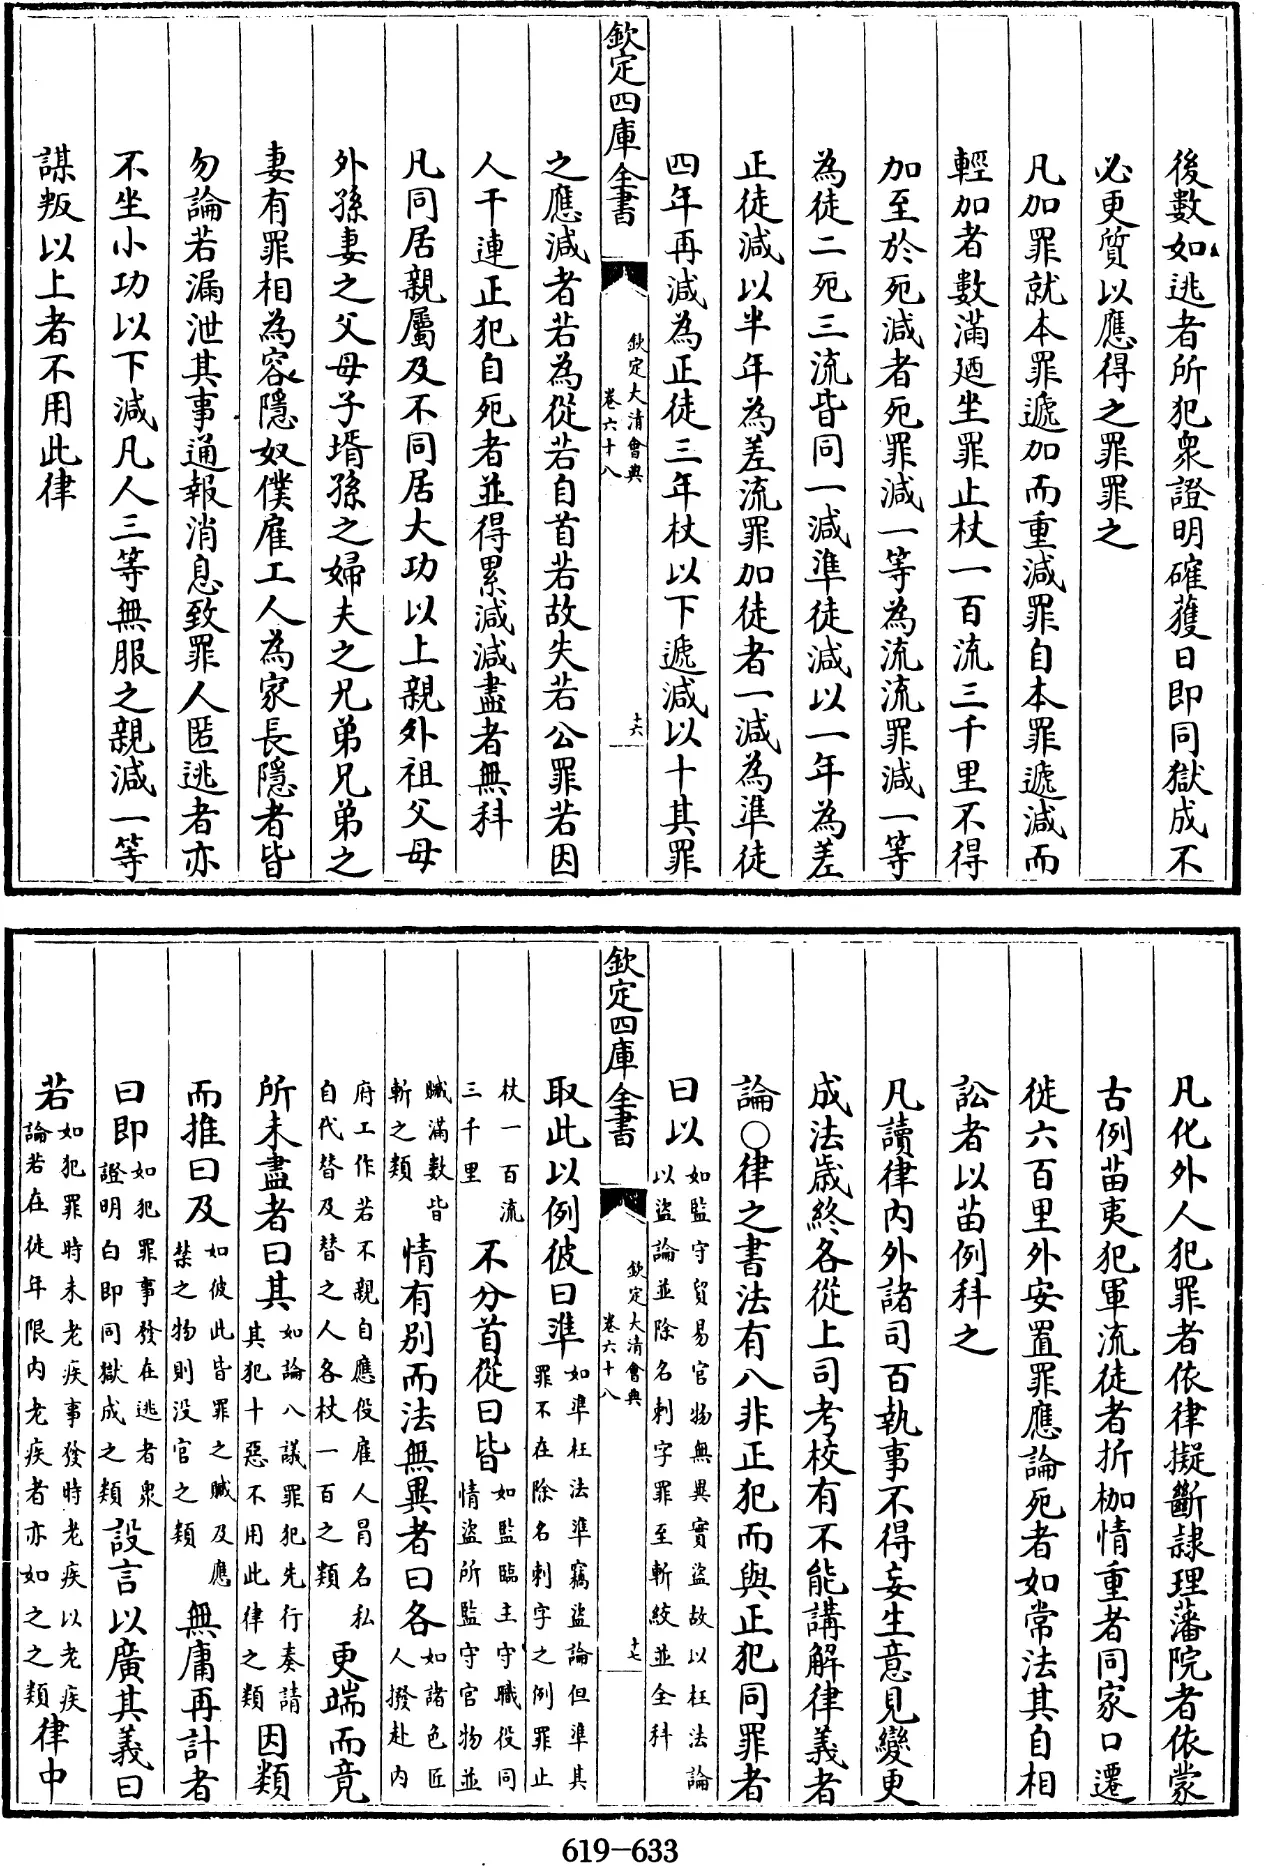 後數如逃者所犯衆證明確獲日即同獄成不
必更質以應得之罪罪之
凡加罪就本罪遞加而重減罪自本罪遞減而
輕加者數滿廼坐罪止杖一百流三千里不得
加至於死減者死罪減一等為流流罪減一等
為徒二死三流皆同一減準徒減以一年為差
正徒減以半年為差流罪加徒者一減為準徒
四年再減為正徒三年杖以下遞減以十其罪
欽定四庫全書
欽定大清會典
卷六十八
十六
之應減者若為從若自首若故失若公罪若因
人干連正犯自死者並得累減減盡者無科
凡同居親屬及不同居大功以上親外祖父母
外孫妻之父母子壻孫之婦夫之兄弟兄弟之
妻有罪相為容隱奴僕雇工人為家長隱者皆
勿論若漏泄其事通報消息致罪人匿逃者亦
不坐小功以下減凡人三等無服之親減一等
謀叛以上者不用此律
凡化外人犯罪者依律擬斷隸理藩院者依蒙
古例苗夷犯軍流徒者折枷情重者同家口遷
徙六百里外安置罪應論死者如常法其自相
訟者以苗例科之
凡讀律內外諸司百執事不得妄生意見變更
成法歲終各從上司考校有不能講解律義者
論○律之書法有八非正犯而與正犯同罪者
曰以如監守貿易官物無異實盜故以枉法論
以盜論並除名刺字罪至斬絞並全科
欽定四庫全書
欽定大清會典
卷六十八
十七
取此以例彼曰準如準枉法準竊盜論但準其
罪不在除名刺字之例罪止
杖一百流
三千里不分首從曰皆如監臨主守職役同
情盜所監守官物並
贓滿數皆
斬之類情有別而法無異者曰各如諸色匠
人撥赴內
府工作若不親自應役雇人冒名私
自代替及替之人各杖一百之類更端而竟
所未盡者曰其如論八議罪犯先行奏請
其犯十惡不用此律之類因類
而推曰及如彼此皆罪之贓及應
禁之物則没官之類無庸再計者
曰即如犯罪事發在逃者衆
證明白即同獄成之類設言以廣其義曰
若如犯罪時未老疾事發時老疾以老疾
論若在徒年限內老疾者亦如之之類律中
619-633